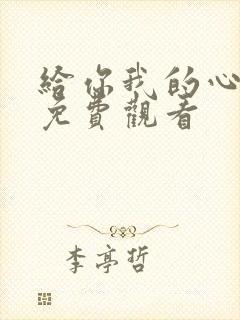 給你我的心
免費觀看
李亭哲